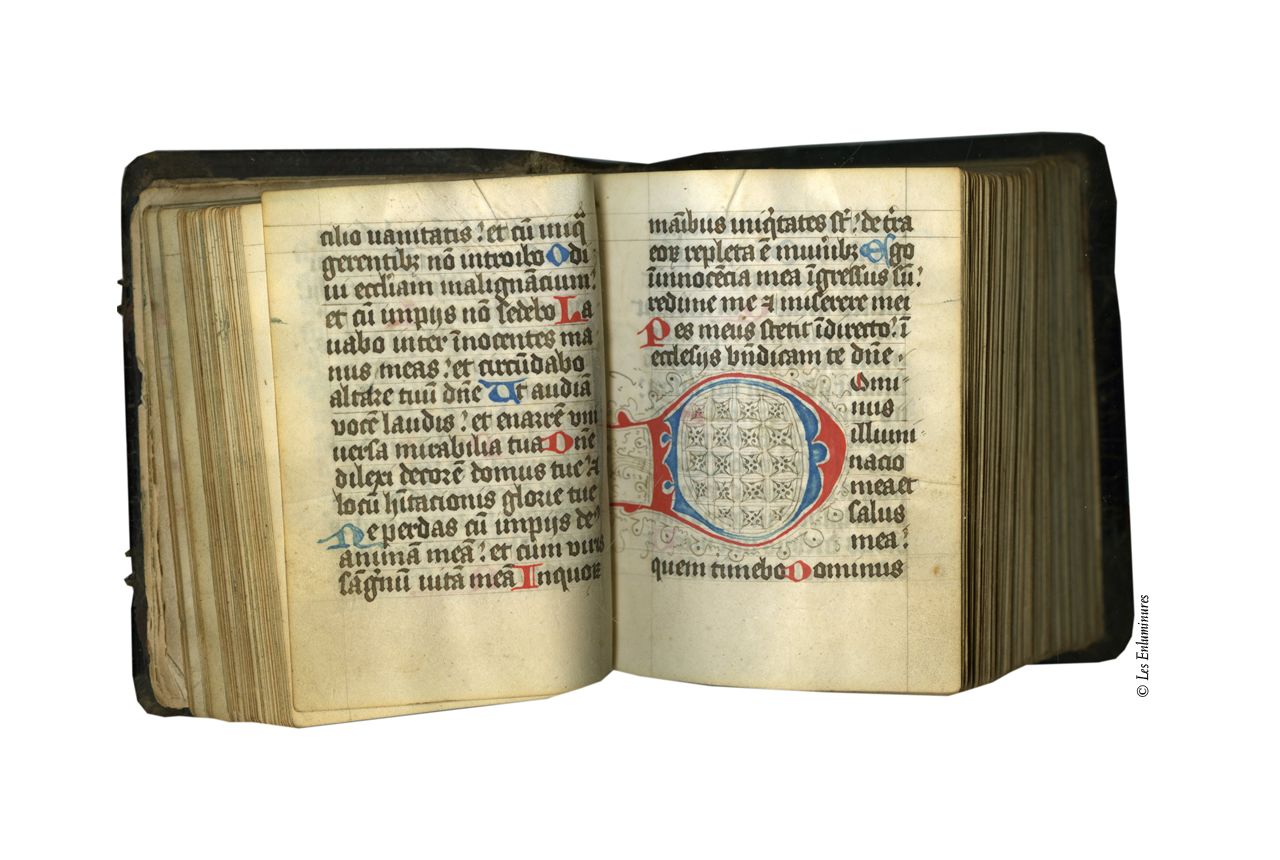 cilio vanitatis : et cū iniq̄
gerentibꝫ nō introibo Odi
vi eccl̄iam malignācium :
et cū impijs nō sedebo La
vabo inter īnocentes ma
nus meas : et circūdabo
altare tuū dn̄e Ut audiā
vocē laudis : et enarrē vni
versa mirabilia tua Dn̄e
dilexi decorē domus tue : ⁊
locū hītacionis glorie tue
Ne perdas cū impijs deˢ
animā meā : et cum viris
sāgīnū vitā meā In quoꝝ
manibus iniq̄tates st̄ : dext̄ra
eoꝝ repleta ē munībꝫ Ego
īnnocēcia mea īgressus sū :
redime me ⁊ miserere mei
Pes meus stetit īdirecto : ī
ecclesijs bn̄dicam te dn̄e .
Domi
nus
illumi
nacio
mea et
salus
mea :
quem timebo Dominus
© Les Enluminures